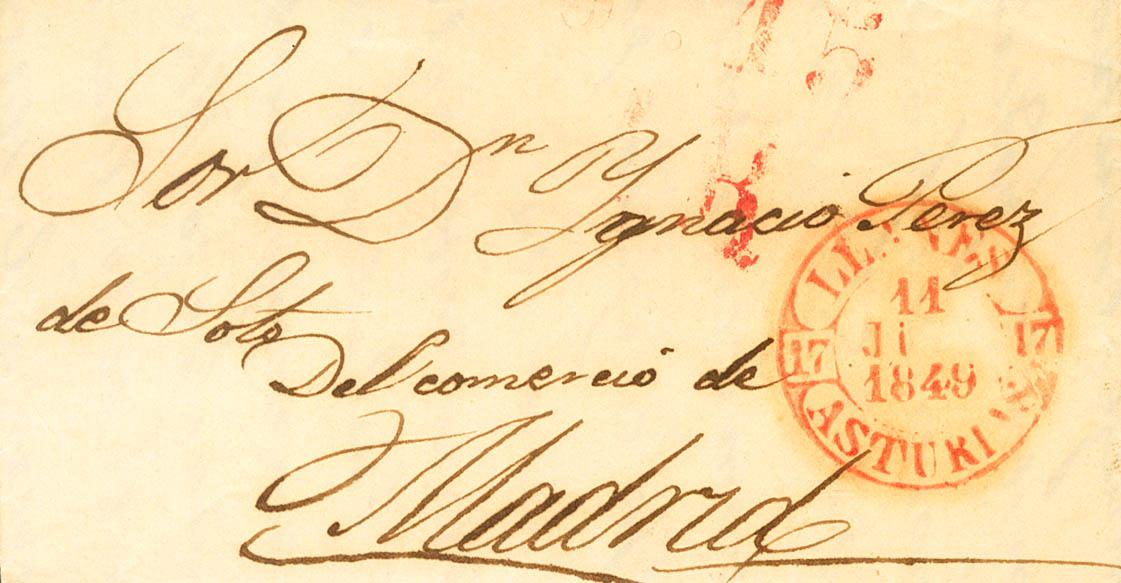 15
R
Sor Dn Ygnacio Perez
de Soto
Del comercio de
Madrid
LLANES
11
17 17
1849
ASTURIAS